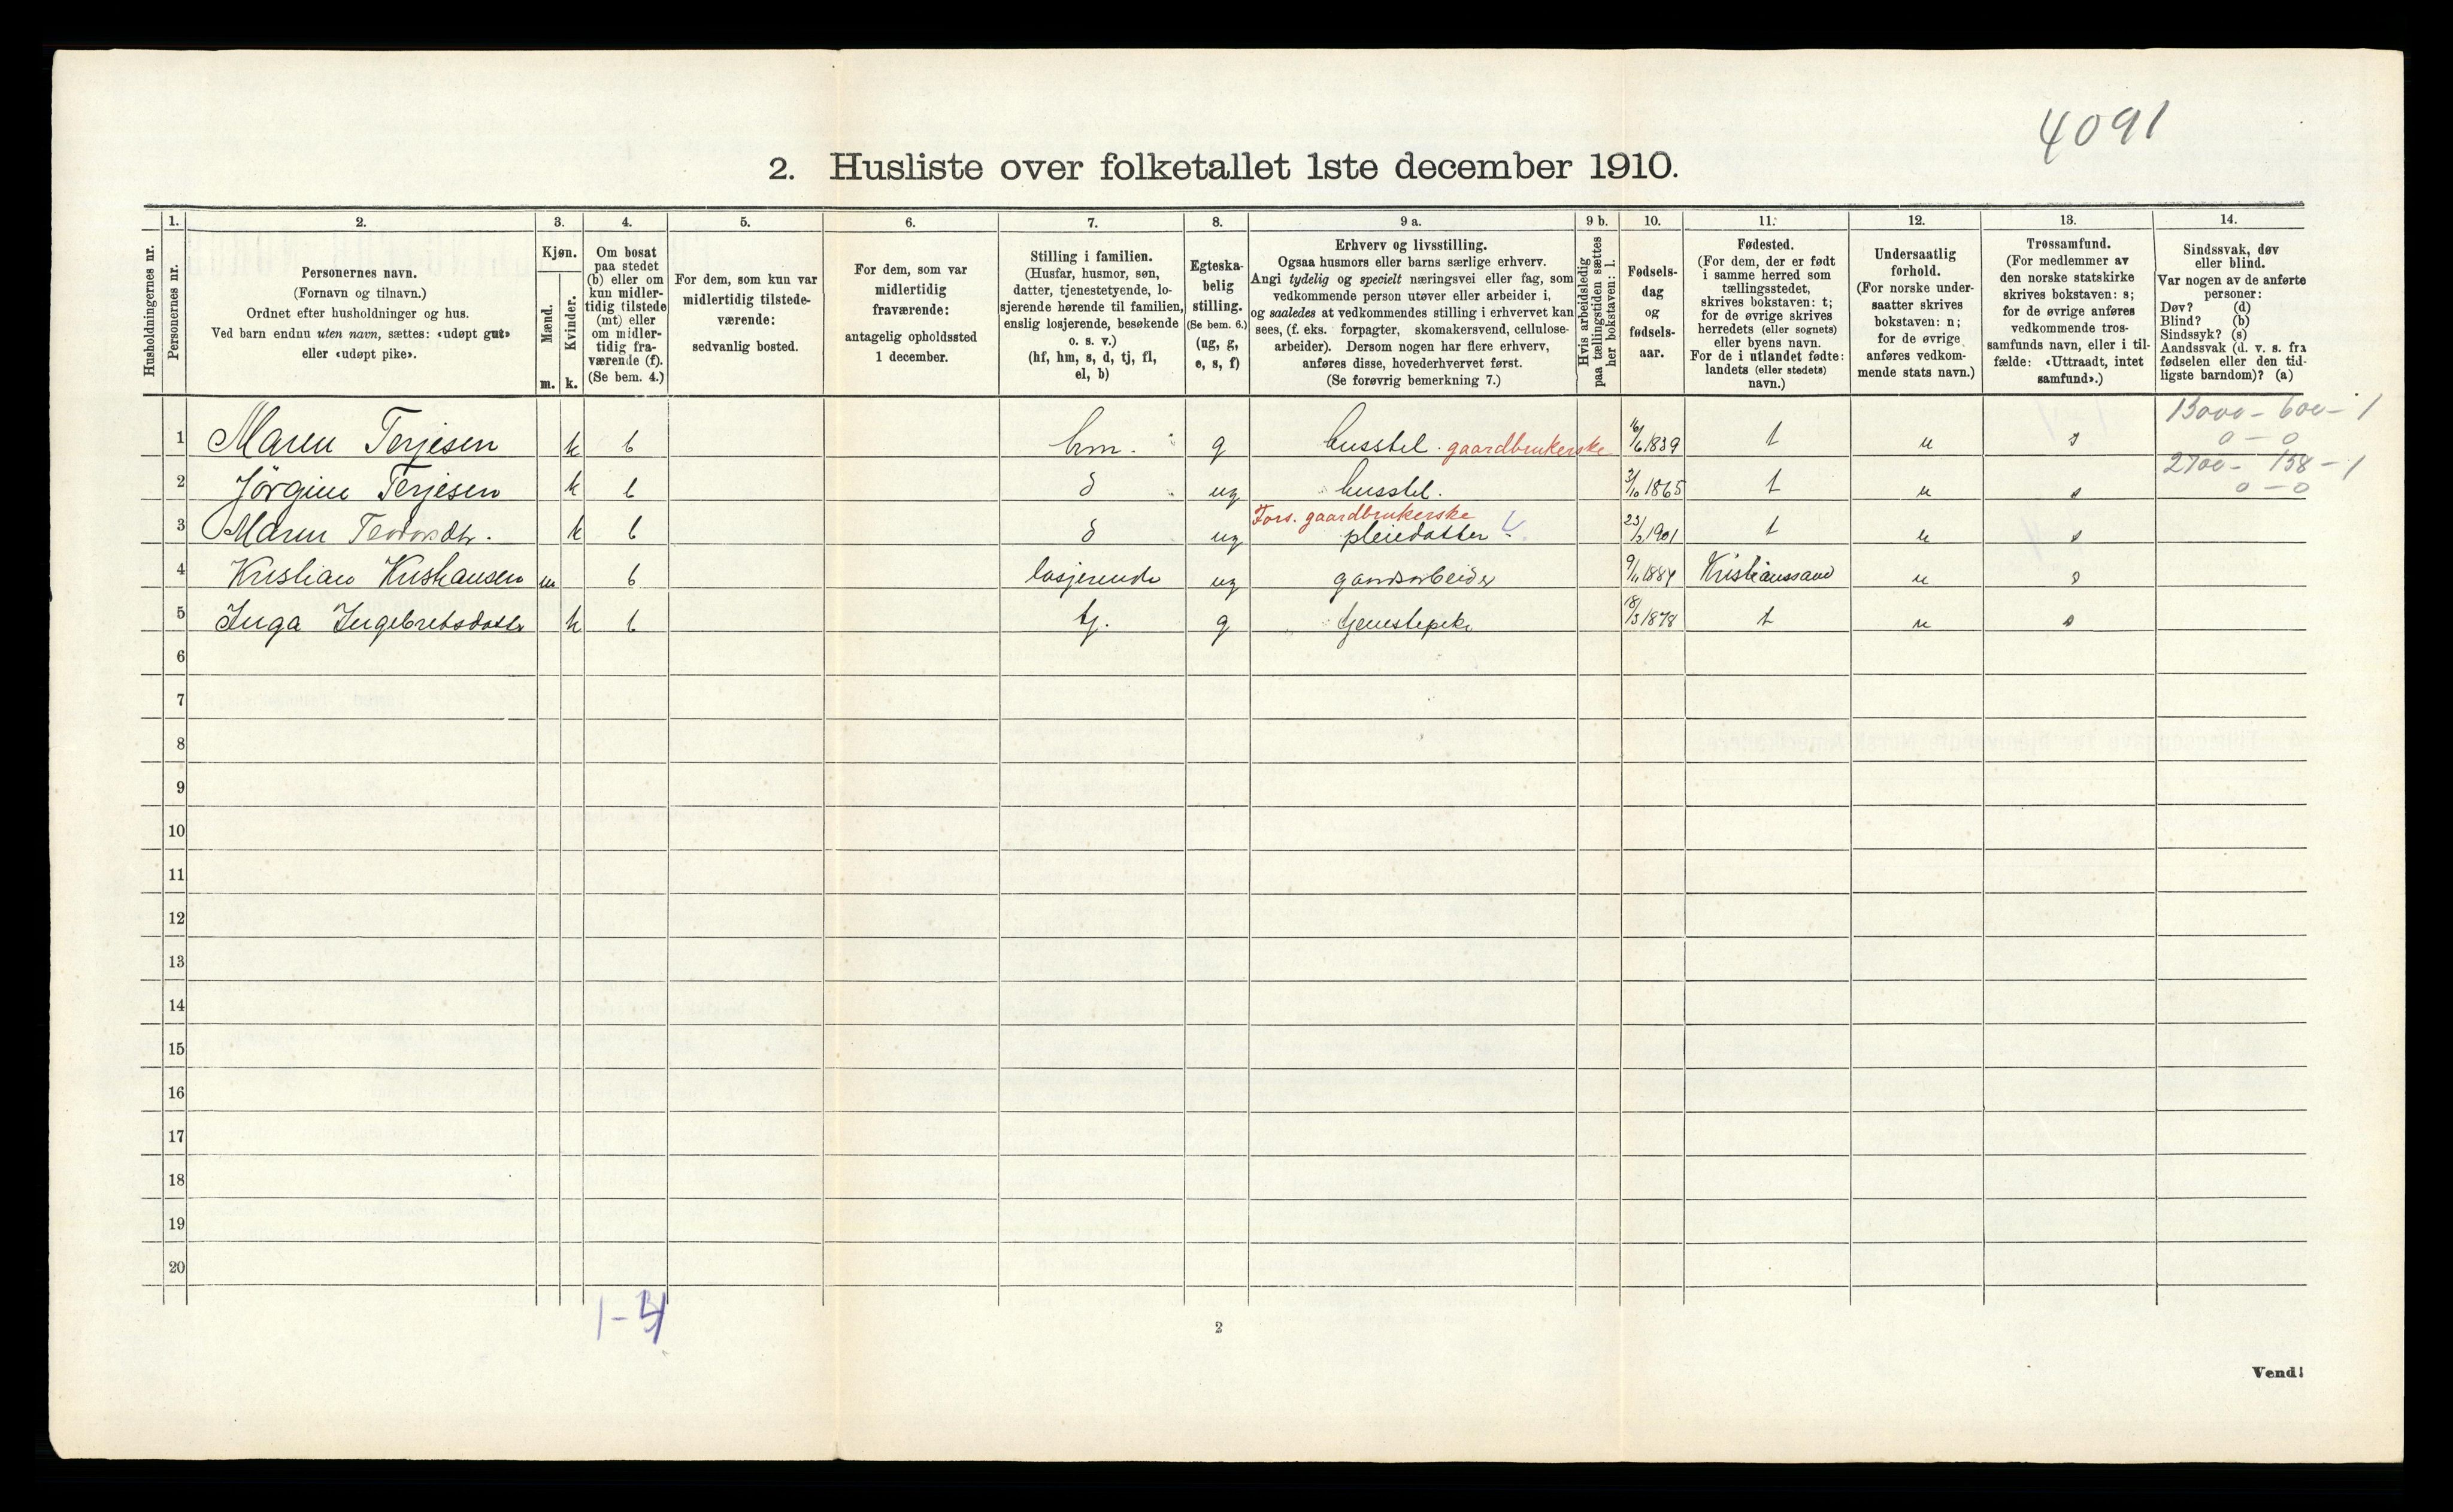 4091
2. Husliste over folketallet 1ste december 1910.
Husholdningernes nr.
1.
Personernes nr.
2.
Personernes navn.
(Fornavn og tilnavn.)
Ordnet efter husholdninger og hus.
Ved barn endnu uten navn, sættes: «udøpt gut»
eller «udøpt pike».
3.
Kjøn.
Mænd.
Kvinder.
m. k.
4.
Om bosat
paa stedet
(b) eller om
kun midler-
tidig tilstede
(mt) eller
om midler-
tidig fra-
værende (f).
(Se bem. 4.)
5.
For dem, som kun var
midlertidig tilstede-
værende:
sedvanlig bosted.
6.
For dem, som var
midlertidig
fraværende:
antagelig opholdssted
1 december.
7.
Stilling i familien.
(Husfar, husmor, søn,
datter, tjenestetyende, lo-
sjerende hørende til familien,
enslig losjerende, besøkende
o. s. v.)
(hf, hm, s, d, tj, fl,
el, b)
8.
Egteska-
belig
stilling.
(Se bem. 6.)
(ug, g,
e, s, f)
9 a.
Erhverv og livsstilling.
Ogsaa husmors eller barns særlige erhverv.
Angi tydelig og specielt næringsvei eller fag, som
vedkommende person utøver eller arbeider i,
og saaledes at vedkommendes stilling i erhvervet kan
sees, (f. eks. forpagter, skomakersvend, cellulose-
arbeider). Dersom nogen har flere erhverv,
anføres disse, hovederhvervet først.
(Se forøvrig bemerkning 7.)
9 b.
Hvis arbeidsledig
paa tællingstiden sættes
her bokstaven: l.
10.
Fødsels-
dag
og
fødsels-
aar.
11.
Fødested.
(For dem, der er født
i samme herred som
tællingsstedet,
skrives bokstaven: t;
for de øvrige skrives
herredets (eller sognets)
eller byens navn.
For de i utlandet fødte:
landets (eller stedets)
navn.)
12.
Undersaatlig
forhold.
(For norske under-
saatter skrives
bokstaven: n;
for de øvrige
anføres vedkom-
mende stats navn.)
13.
Trossamfund.
(For medlemmer av
den norske statskirke
skrives bokstaven: s;
for de øvrige anføres
vedkommende tros-
samfunds navn, eller i til-
fælde: «Uttraadt, intet
samfund».)
14.
Sindssvak, døv
eller blind.
Var nogen av de anførte
personer:
Døv? (d)
Blind? (b)
Sindssyk? (s)
Aandssvak (d. v. s. fra
fødselen eller den tid-
ligste barndom)? (a)
13000 - 600 - 1
1 Maren Terjesen k b hm. g husstel . gaardbrukerske 16/6 1839 t n s 0 - 0
2700 - 158 - 1
2 Jörgine Terjesen k b d ug husstel. 3/10 1865 t n s 0 - 0
Fors. gaardbrukerske
3 Maren Teodorsdtr. k b d ug pleiedatter 23/2 1901 t n s
4 Kristian Kristiansen m b losjerende ug gaardsarbeider 9/11 1884 Kristianssand n s
5 Inga Ingebretsdatter k b tj. g tjenestepike 18/3 1878 t n s
6
7
8
9
10
11
12
13
14
15
16
17
18
19
20
2
Vend!